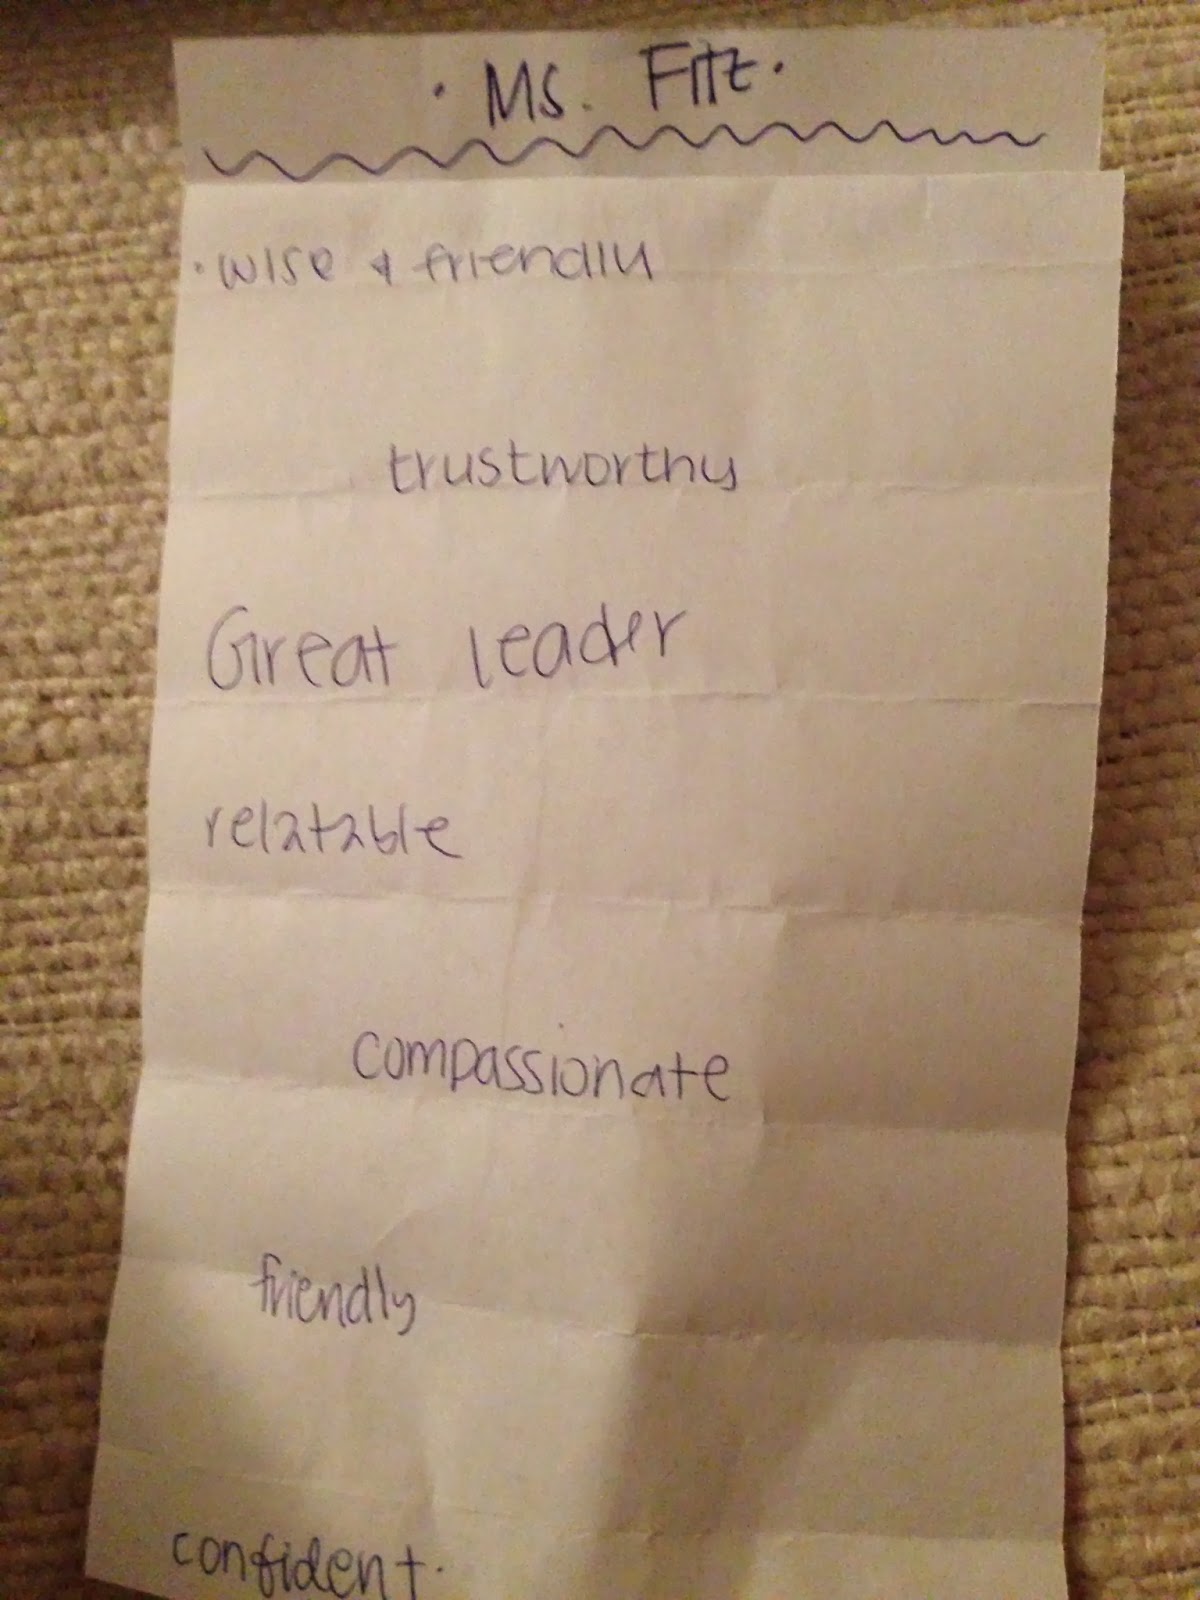 · Ms. Fitz ·
· wise & friendly
trustworthy
Great leader
relatable
compassionate
friendly
confident.